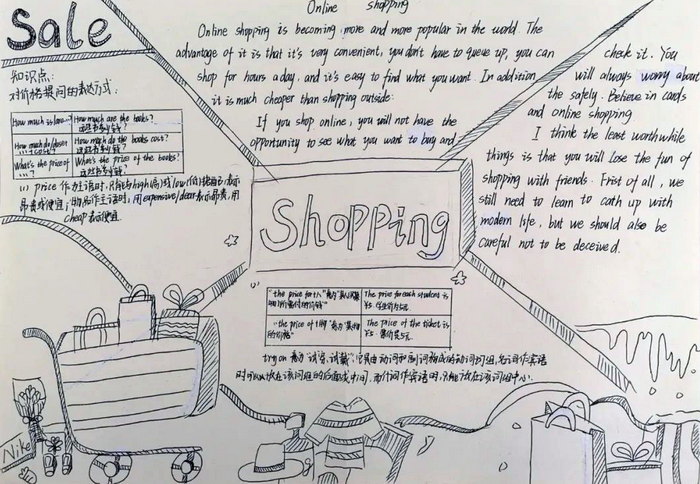 Sale
Online shopping
Online shopping is becoming more and more popular in the world. The
advantage of it is that it's very convenient, you don't have to queue up, you can
shop for hours a day, and it's easy to find what you want. In addition,
it is much cheaper than shopping outside.
If you shop online, you will not have the
opportunity to see what you want to buy and
check it. You
will always worry about
the safely. Believe in cards
and online shopping
I think the least worthwhile
things is that you will lose the fun of
shopping with friends. Frist of all, we
still need to learn to cath up with
modern life, but we should also be
careful not to be deceived.
知识点:
对价格提问的表达方式:
How much is/are...? How much are the books?
这些书多少钱?
How much do/does
...cost? How much do the books cost?
这些书多少钱?
What's the price of
...? What's the price of the books?
这些书多少钱?
(1) price 作主语时,只能用high(高)或low(低)
昂贵或便宜;物品作主语时,用expensive/dear表示昂贵,用
cheap表示便宜
Shopping
"the price for+人" The price for each student is
¥5. 学生价为5元.
"the price of+物" The price of the ticket is
¥5. 票价是5元.
try on 意为"试穿,试戴",它是由动词和副词构成的动词词组,名词作宾语
时可以放在该词组的后面或中间,代词作宾语时,只能放在该词组中间.
Nike